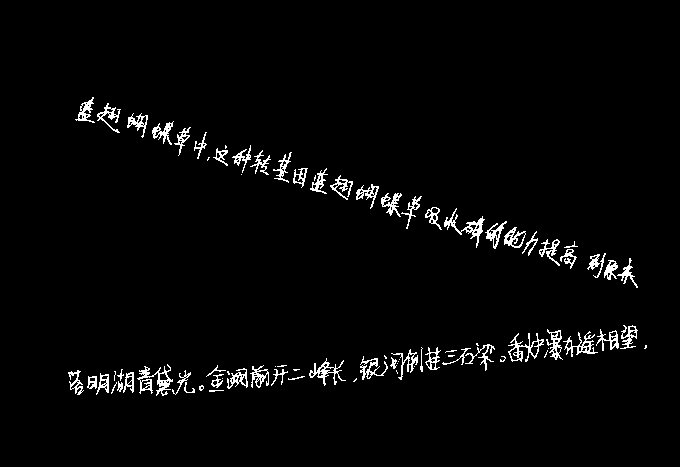 蓝翅蝴蝶草中,这种转基因蓝翅蝴蝶草吸收磷的能力提高到原来
落明湖青黛光。金阙前开二峰长,银河倒挂三石梁。香炉瀑布遥相望,